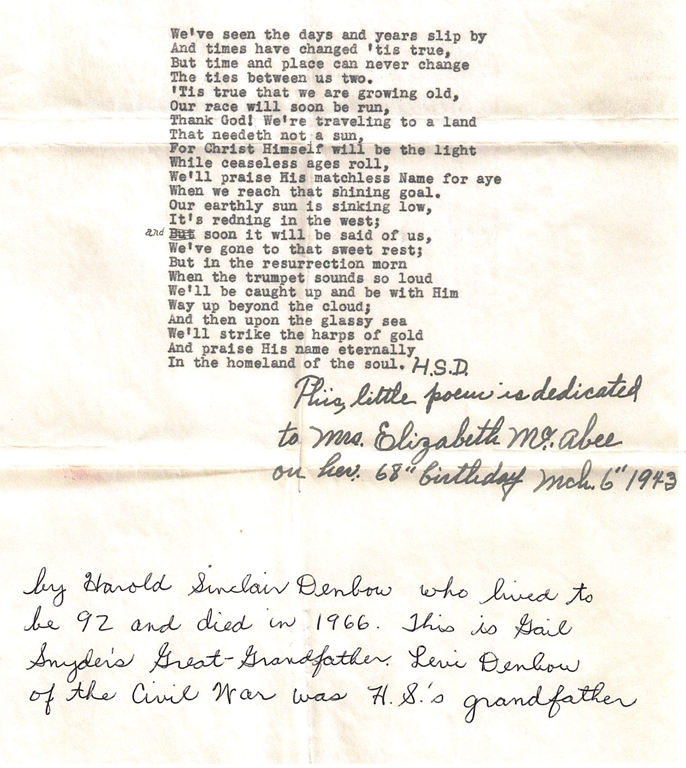 We've seen the days and years slip by
And times have changed 'tis true,
But time and place can never change
The ties between us two.
'Tis true that we are growing old,
Our race will soon be run,
Thank God! We're traveling to a land
That needeth not a sun,
For Christ Himself will be the light
While ceaseless ages roll,
We'll praise His matchless Name for aye
When we reach that shining goal.
Our earthly sun is sinking low,
It's redning in the west;
and But soon it will be said of us,
We've gone to that sweet rest;
But in the resurrection morn
When the trumpet sounds so loud
We'll be caught up and be with Him
Way up beyond the cloud;
And then upon the glassy sea
We'll strike the harps of gold
And praise His name eternally
In the homeland of the soul. H.S.D.
This, little poem is dedicated
to Mrs. Elizabeth Mc. Abee
on her. 68" birthday Mch. 6" 1943
by Harold Sinclair Denbow who lived to
be 92 and died in 1966. This is Gail
Snyder's Great-Grandfather. Levi Denbow
of the Civil War was H.S.'s grandfather